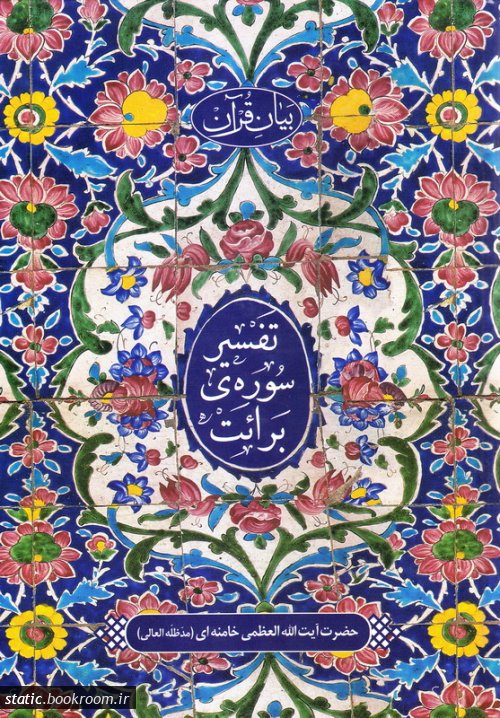 بیانِ قُرآن
تفسیر
سوره‌ی
بَرائت
حضرت آیت الله العظمی خامنه ای (مدّظلّه العالی)
static.bookroom.ir